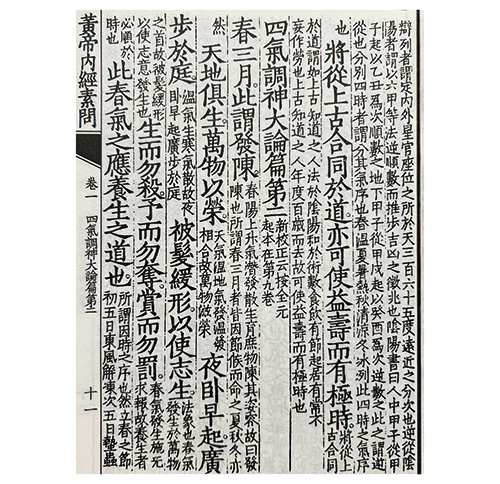 辯列者謂定內外星官座位之所於天三百六十五度遠近之分次也逆從陰
陽者謂以六甲等法逆順數而推步吉凶之徵兆也陰陽書曰人中甲子從甲
子起以乙丑為次順數之地下甲子從甲戌起以癸酉為次逆數之此之謂逆
從也分別四時者謂分其氣序也春溫夏暑熱秋清涼冬冰冽此四時之氣序
也 將從上古合同於道。亦可使益壽而有極時。將從上古合同
於道謂如上古知道之人法於陰陽和於術數食飲有節起居有常不
妄作勞也上古知道之人年度百歲而去故可使益壽而有極時也
四氣調神大論篇第二 新校正云按全元起本在第九卷
春三月。此謂發陳。春陽上升氣潛發散生育庶物陳其姿容故曰發陳也所謂春三月者皆因節候而命之夏秋冬亦
然 天地俱生萬物以榮。天氣溫地氣發溫發相合故萬物滋榮 夜臥早起廣
步於庭。溫氣生寒氣散故夜臥早起廣步於庭 被髮緩形。以使志生。法象也春氣發生於萬物
之首故被髮緩形以使志意發生也 生而勿殺。予而勿奪。賞而勿罰。春氣發生施无求報故養生者
必順於時也 此春氣之應養生之道也。所謂因時之序也然立春之節初五日東風解凍次五日蟄蟲
黃帝內經素問 卷一 四氣調神大論篇第二 十一